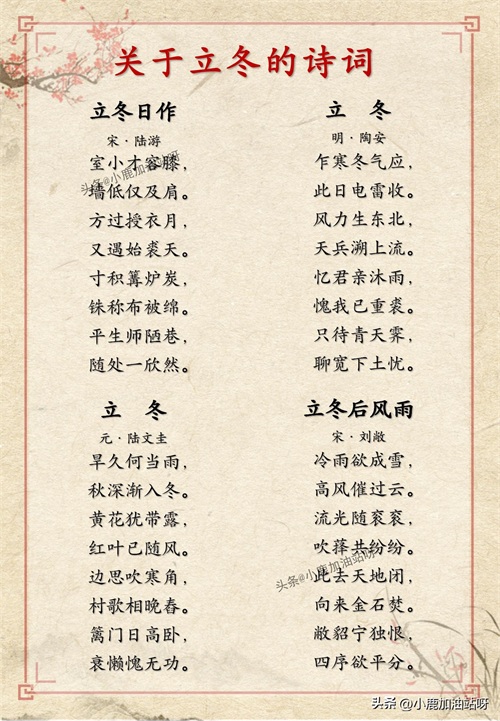 关于立冬的诗词
立冬日作
宋·陆游
室小才容膝，
墙低仅及肩。
方过授衣月，
又遇始裘天。
寸积篝炉炭，
铢称布被绵。
平生师陋巷，
随处一欣然。
立 冬
明·陶安
乍寒冬气应，
此日电雷收。
风力生东北，
天兵溯上流。
忆君亲沐雨，
愧我已重裘。
只待青天霁，
聊宽下土忧。
立 冬
元·陆文圭
旱久何当雨，
秋深渐入冬。
黄花犹带露，
红叶已随风。
边思吹寒角，
村歌相晚舂。
篱门日高卧，
衰懒愧无功。
立冬后风雨
宋·刘敞
冷雨欲成雪，
高风催过云。
流光随衮衮，
吹萚共纷纷。
此去天地闭，
向来金石焚。
敝貂宁独恨，
四序欲平分。
头条@小鹿加油站呀
头条@小鹿加油站呀
头条 @小鹿加油站呀